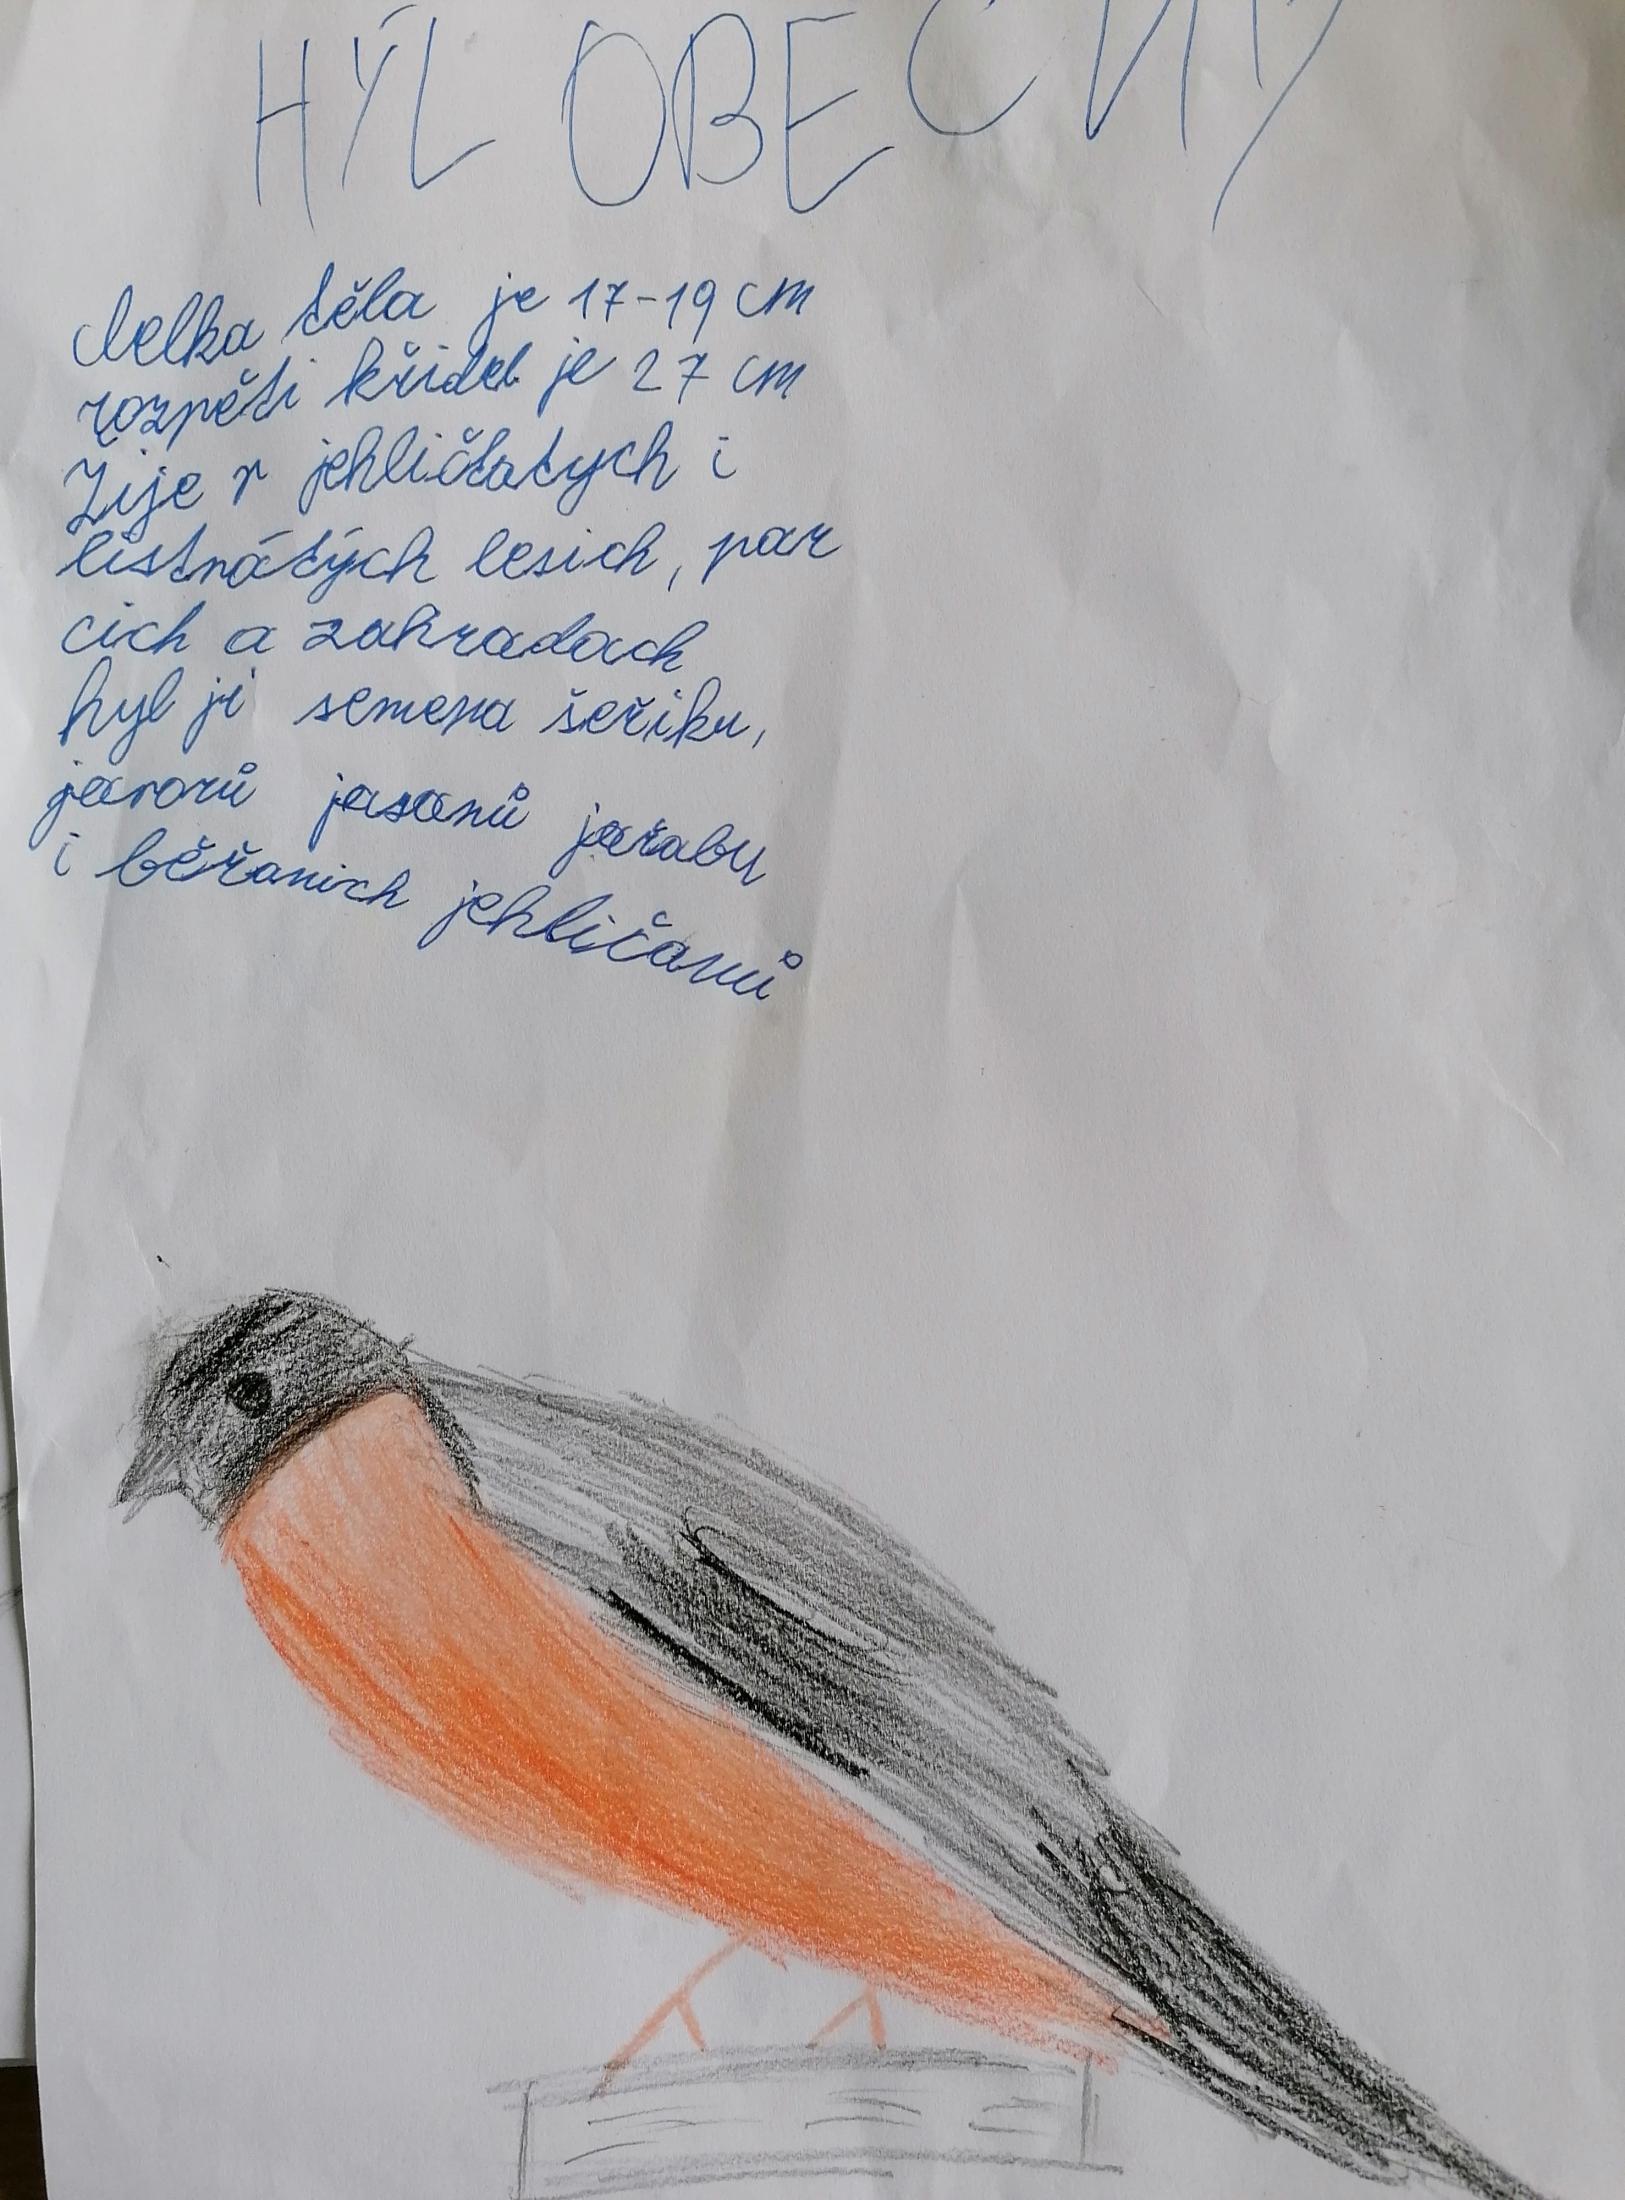 HÝL OBECNÝ
Delka těla je 17-19 cm
rozpěti křidel je 27 cm
Žije v jehličtatych i
listnátých lesich, par
cich a zahradach
hyl ji semena šeřiku,
javorů jasanů jeřabu
i běřanich jehličanů